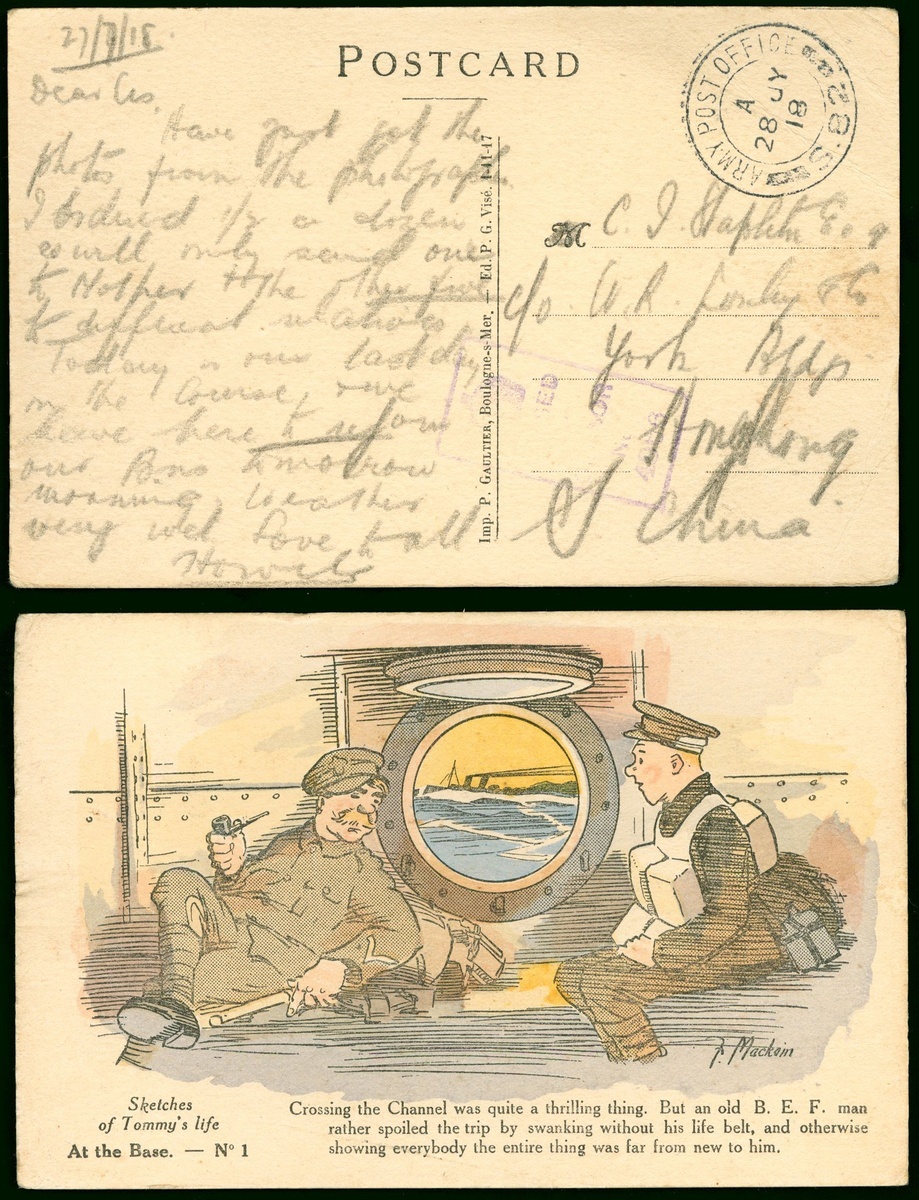 27/7/18.
POSTCARD
Dear Cis.
Have just got the
photos from the photograph.
I ordered 1/2 a dozen
so will only send one
to Mother & the other five
to different relations
Today is our last day
on the Course, & we
leave here to rejoin
our Bns tomorrow
morning, weather
very wet Love to all
Imp. P. GAULTIER, Boulogne-s-Mer. — Ed. P. G. Visé. 1-11-17
ARMY POST OFFICE
S.82
A
28 JY
18
M C. J. Esq
c/o W.R. & Co
York Bldgs
Hongkong.
S China
Sketches
of Tommy's life
At the Base. — Nº 1
Crossing the Channel was quite a thrilling thing. But an old B. E. F. man
rather spoiled the trip by swanking without his life belt, and otherwise
showing everybody the entire thing was far from new to him.
F. Mackain